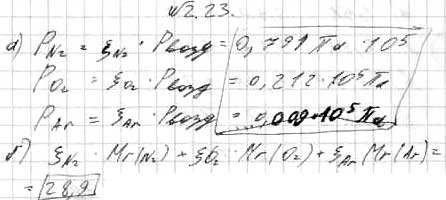 №2.23.
а) P_N₂ = ξ_N₂ · P_возд = 0,791 Па · 10⁵
P_O₂ = ξ_O₂ · P_возд = 0,212 · 10⁵ Па
P_Ar = ξ_Ar · P_возд = 0,009 · 10⁵ Па
б) ξ_N₂ · Mr(N₂) + ξ_O₂ · Mr(O₂) + ξ_Ar Mr(Ar) =
= 28,9